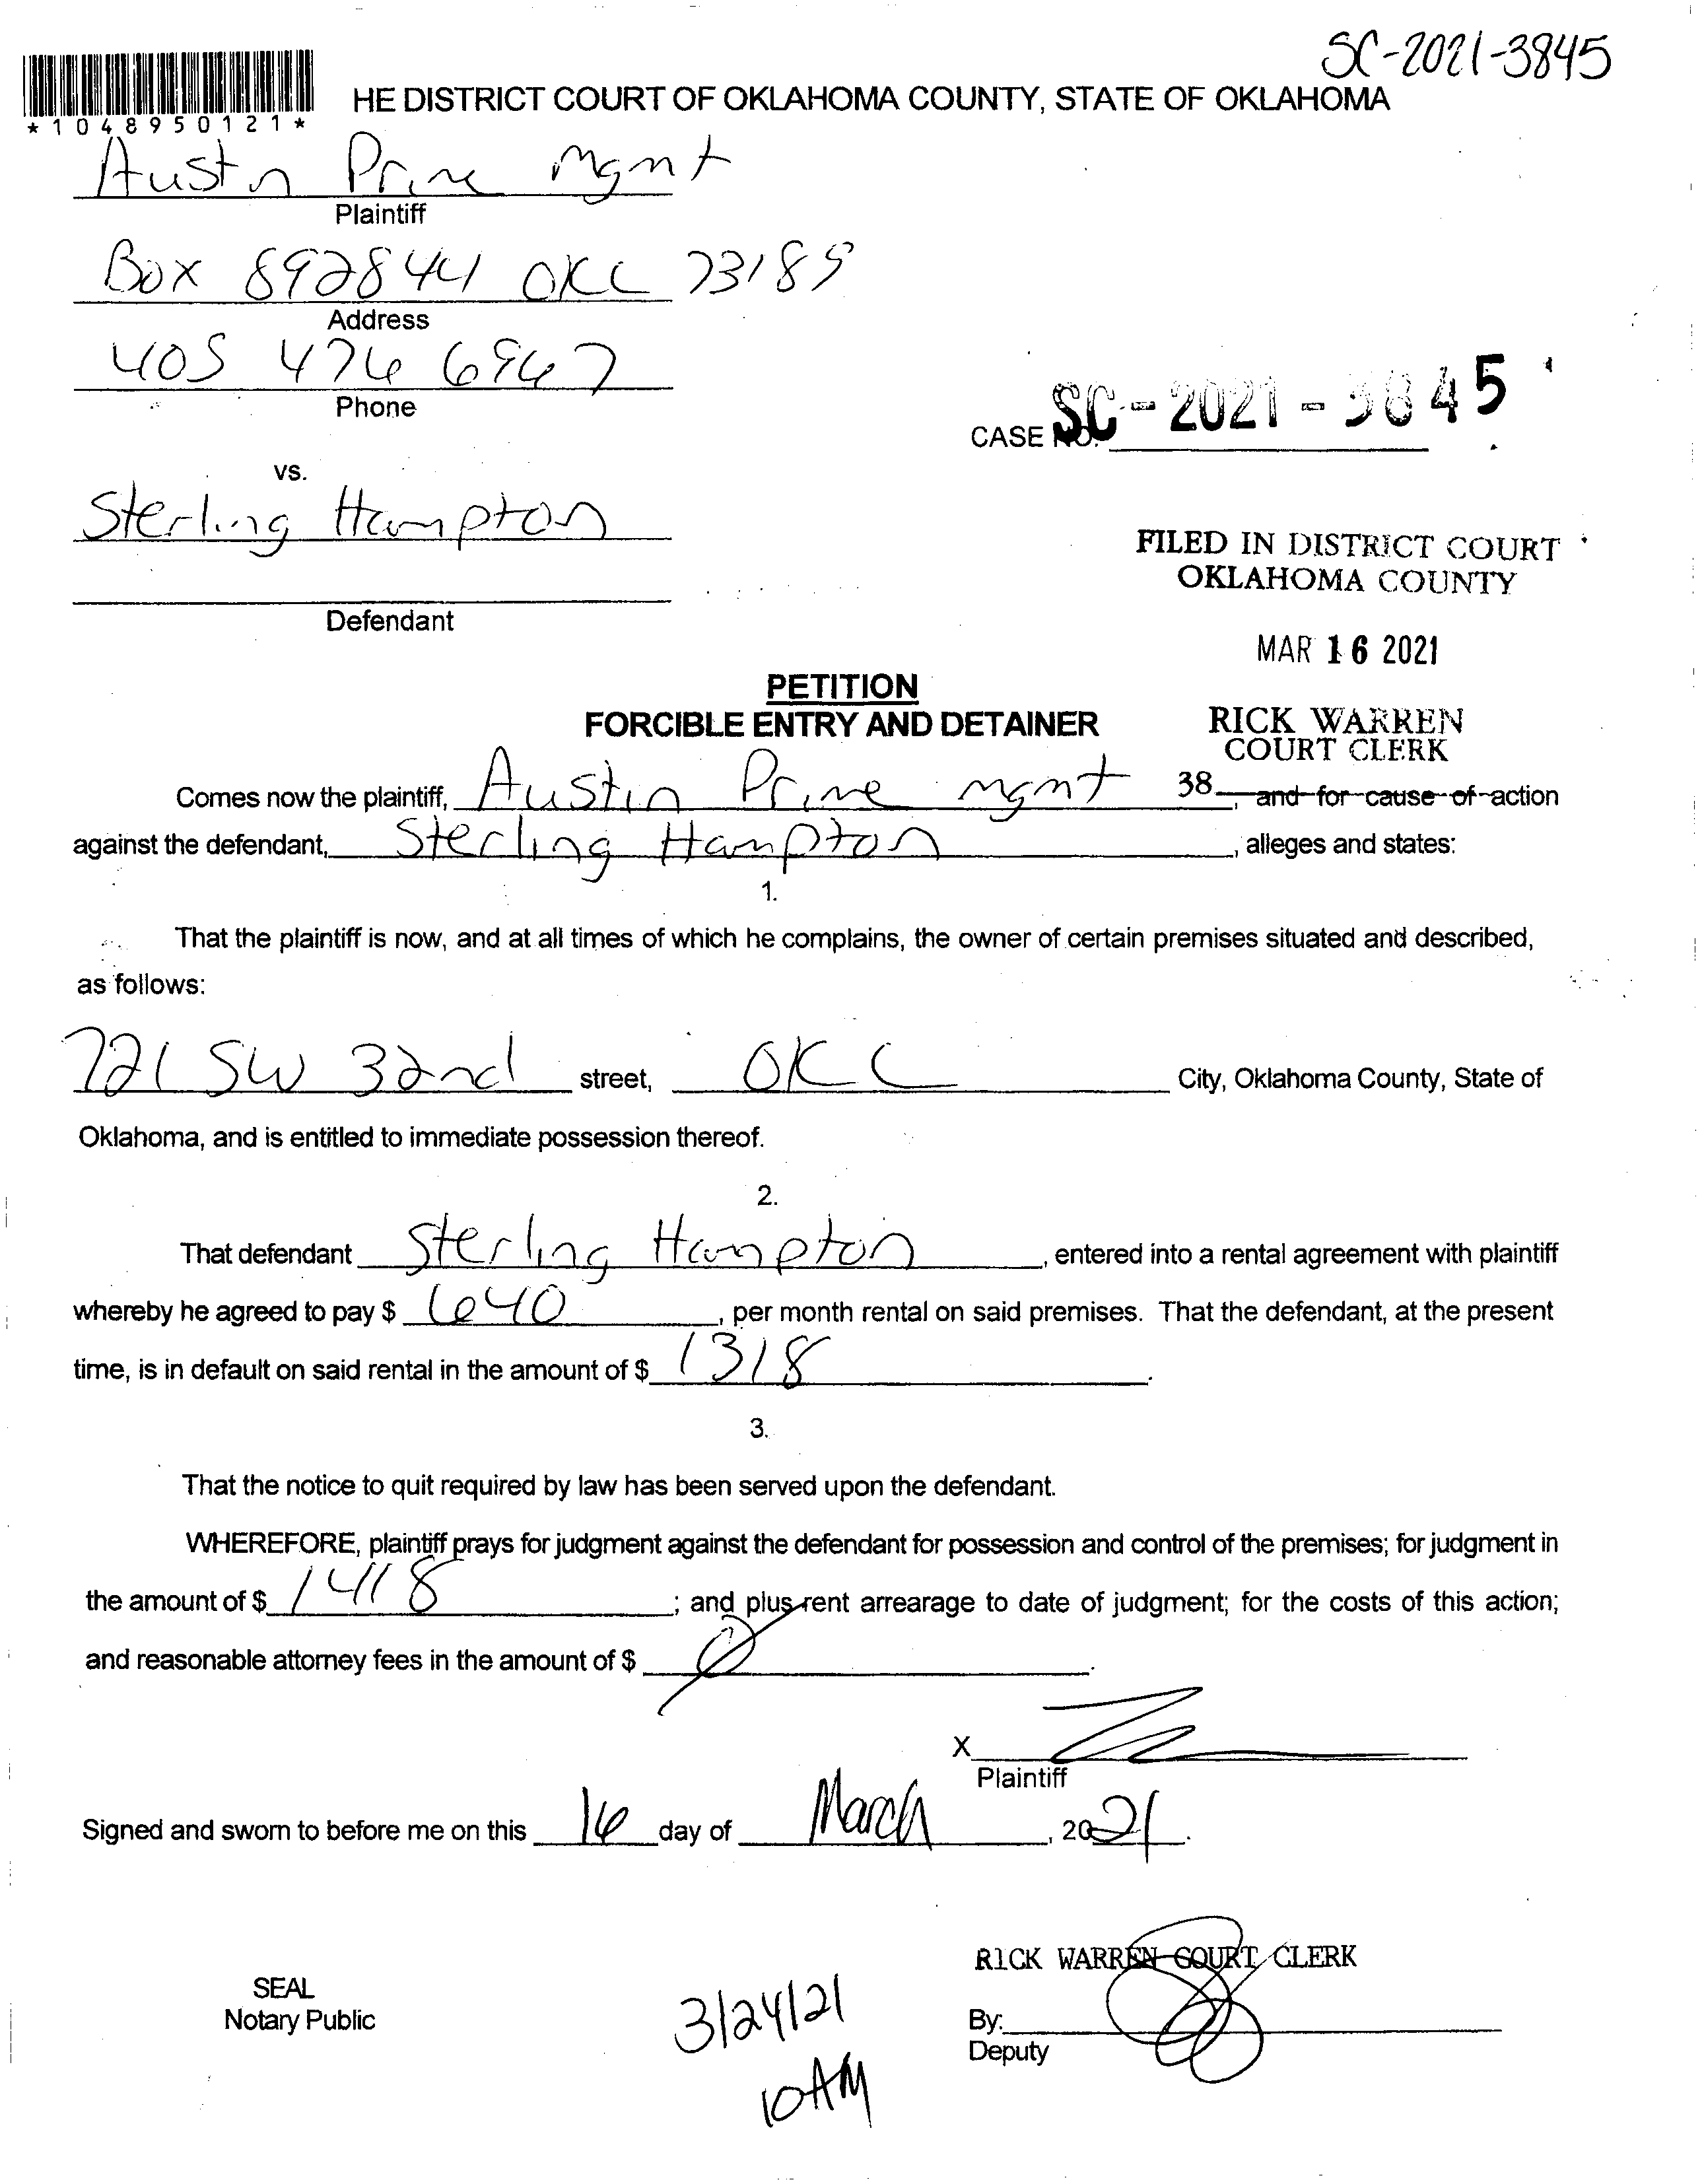 SC-2021-3845
*1048950121*
HE DISTRICT COURT OF OKLAHOMA COUNTY, STATE OF OKLAHOMA
Austin Prime Mgmt
Plaintiff
Box 892844 OKC 73189
Address
405 476 6967
Phone
CASE NO. SC-2021-3845
vs.
Sterling Hampton
FILED IN DISTRICT COURT
OKLAHOMA COUNTY
Defendant
MAR 16 2021
PETITION
FORCIBLE ENTRY AND DETAINER
RICK WARREN
COURT CLERK
Comes now the plaintiff, Austin Prime mgmt 38 , and for cause of action
against the defendant, Sterling Hampton , alleges and states:
1.
That the plaintiff is now, and at all times of which he complains, the owner of certain premises situated and described,
as follows:
721 SW 32nd street, OKC City, Oklahoma County, State of
Oklahoma, and is entitled to immediate possession thereof.
2.
That defendant Sterling Hampton , entered into a rental agreement with plaintiff
whereby he agreed to pay $ 640 , per month rental on said premises. That the defendant, at the present
time, is in default on said rental in the amount of $ 1318 .
3.
That the notice to quit required by law has been served upon the defendant.
WHEREFORE, plaintiff prays for judgment against the defendant for possession and control of the premises; for judgment in
the amount of $ 1418 ; and plus rent arrearage to date of judgment; for the costs of this action;
and reasonable attorney fees in the amount of $ 0 .
X
Plaintiff
Signed and sworn to before me on this 16 day of March , 2021 .
RICK WARREN COURT CLERK
SEAL
Notary Public
3/24/21
10AM
By:
Deputy